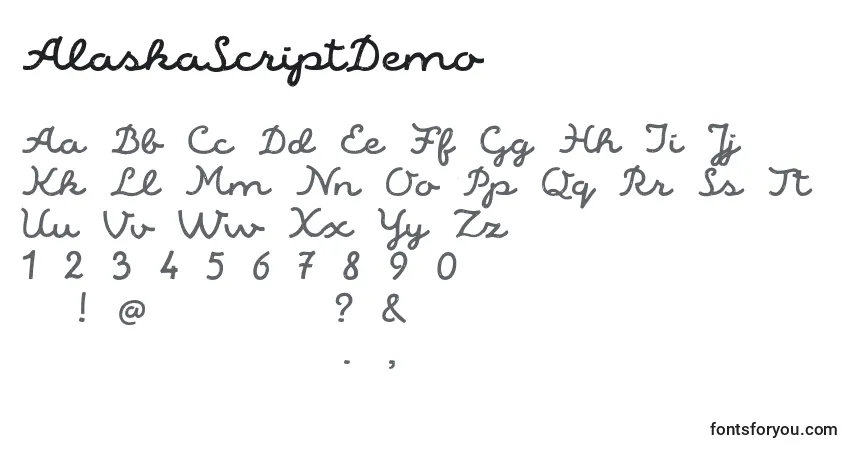 AlaskaScriptDemo
Aa Bb Cc Dd Ee Ff Gg Hh Ii Jj
Kk Ll Mm Nn Oo Pp Qq Rr Ss Tt
Uu Vv Ww Xx Yy Zz
1 2 3 4 5 6 7 8 9 0
! @ ? &
. ,
fontsforyou.com